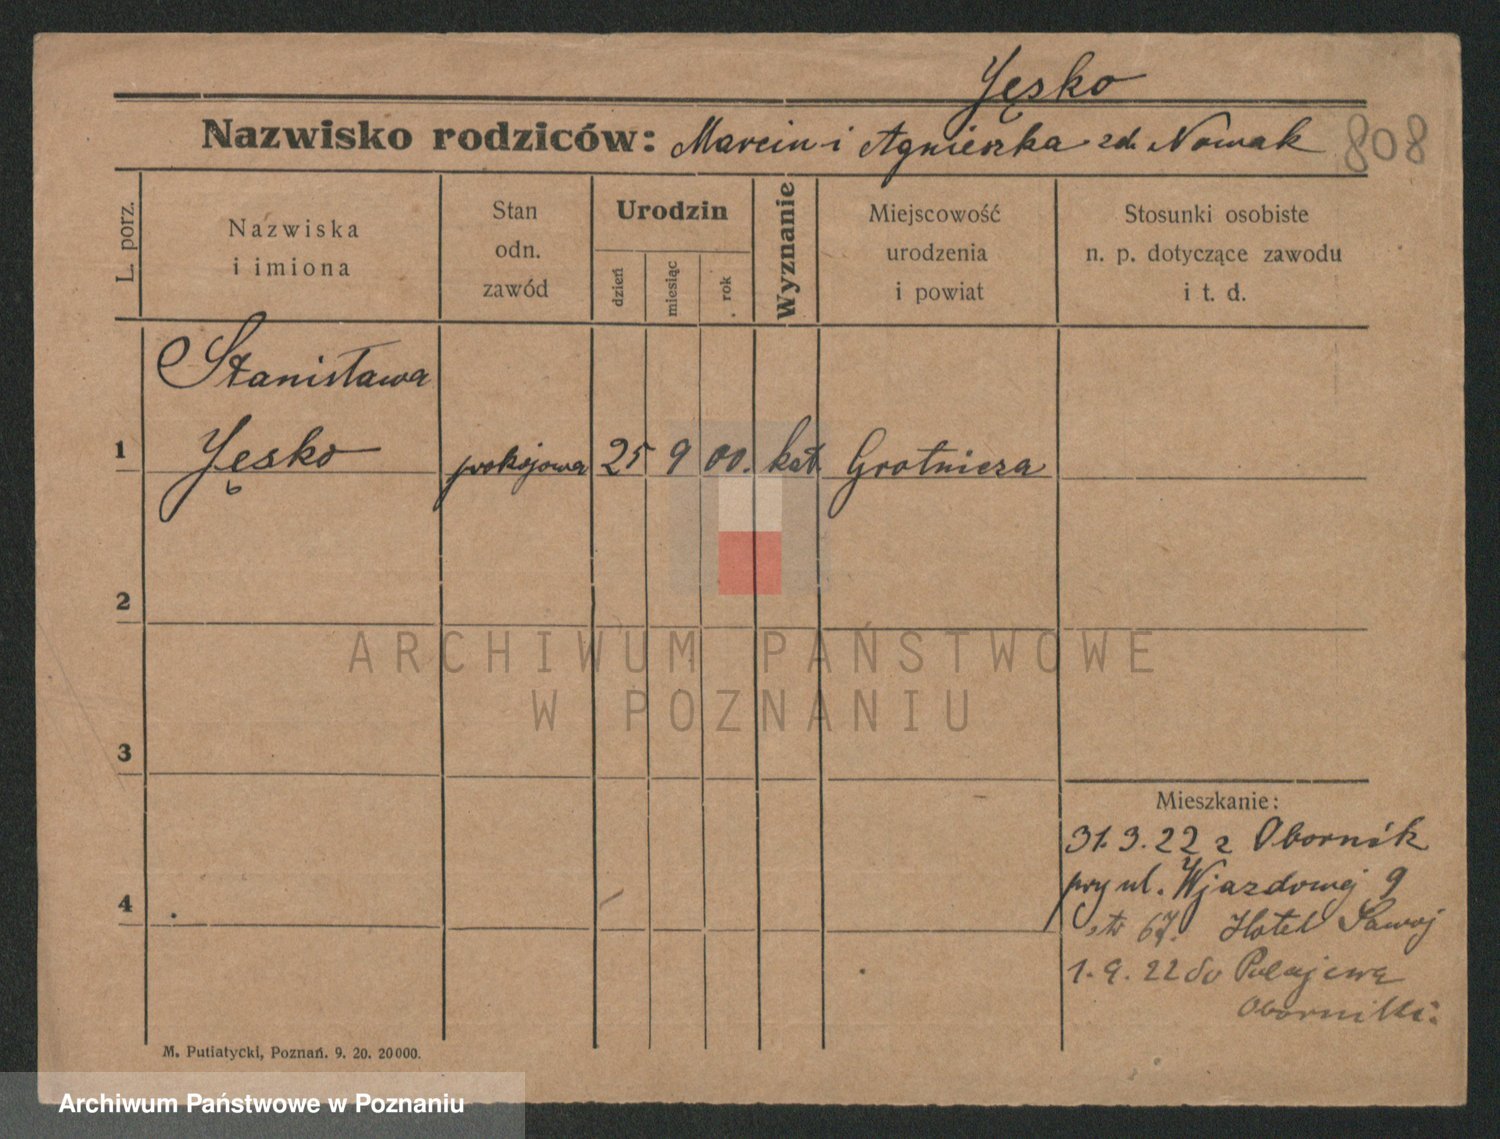 Jęsko
Nazwisko rodziców: Marcin i Agnieszka zd. Nowak
808
L. porz.
Nazwiska
i imiona
Stan
odn.
zawód
Urodzin
dzień
miesiąc
rok
Wyznanie
Miejscowość
urodzenia
i powiat
Stosunki osobiste
n. p. dotyczące zawodu
i t. d.
Stanisława
1 Jęsko pokojowa 25 9 00. kat. Grotnicza
2
3
4
Mieszkanie:
31.3.22 z Obornik
przy ul. Wjazdowej 9
67. Hotel Sawoj
1.9.22 do Połajewa
Oborniki.
M. Putiatycki, Poznań. 9. 20. 20000.
ARCHIWUM PAŃSTWOWE
W POZNANIU
Archiwum Państwowe w Poznaniu